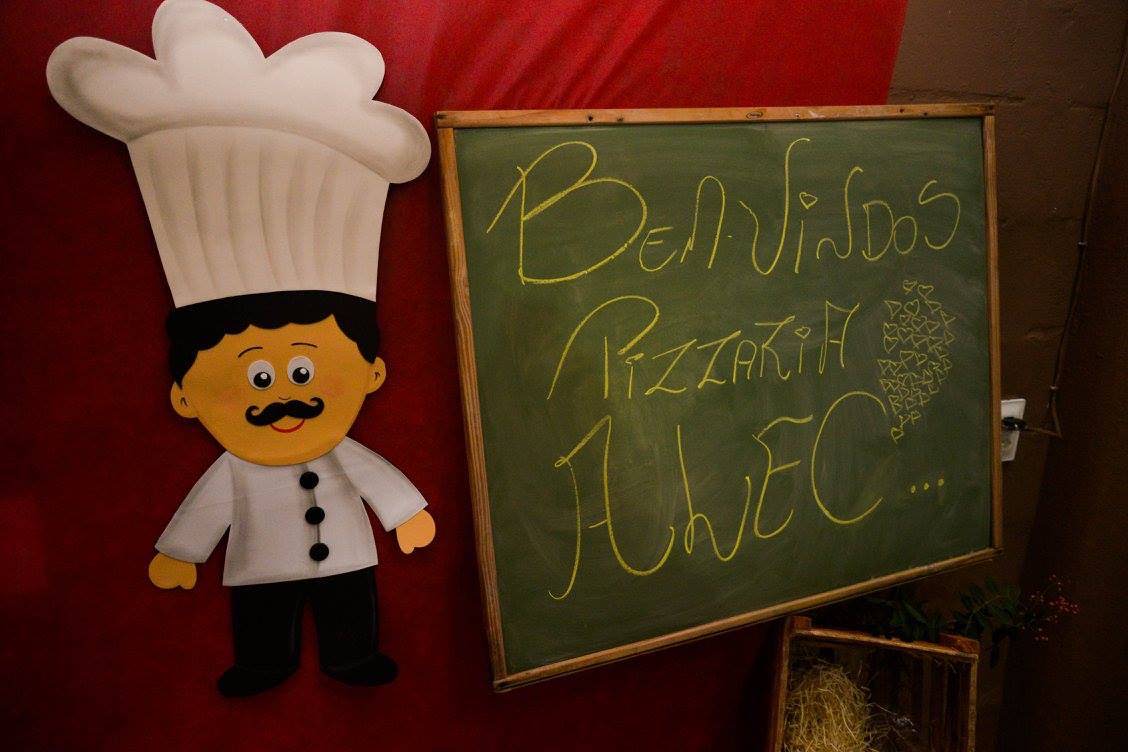 BEM-VINDOS
PIZZARIA
AWEC...